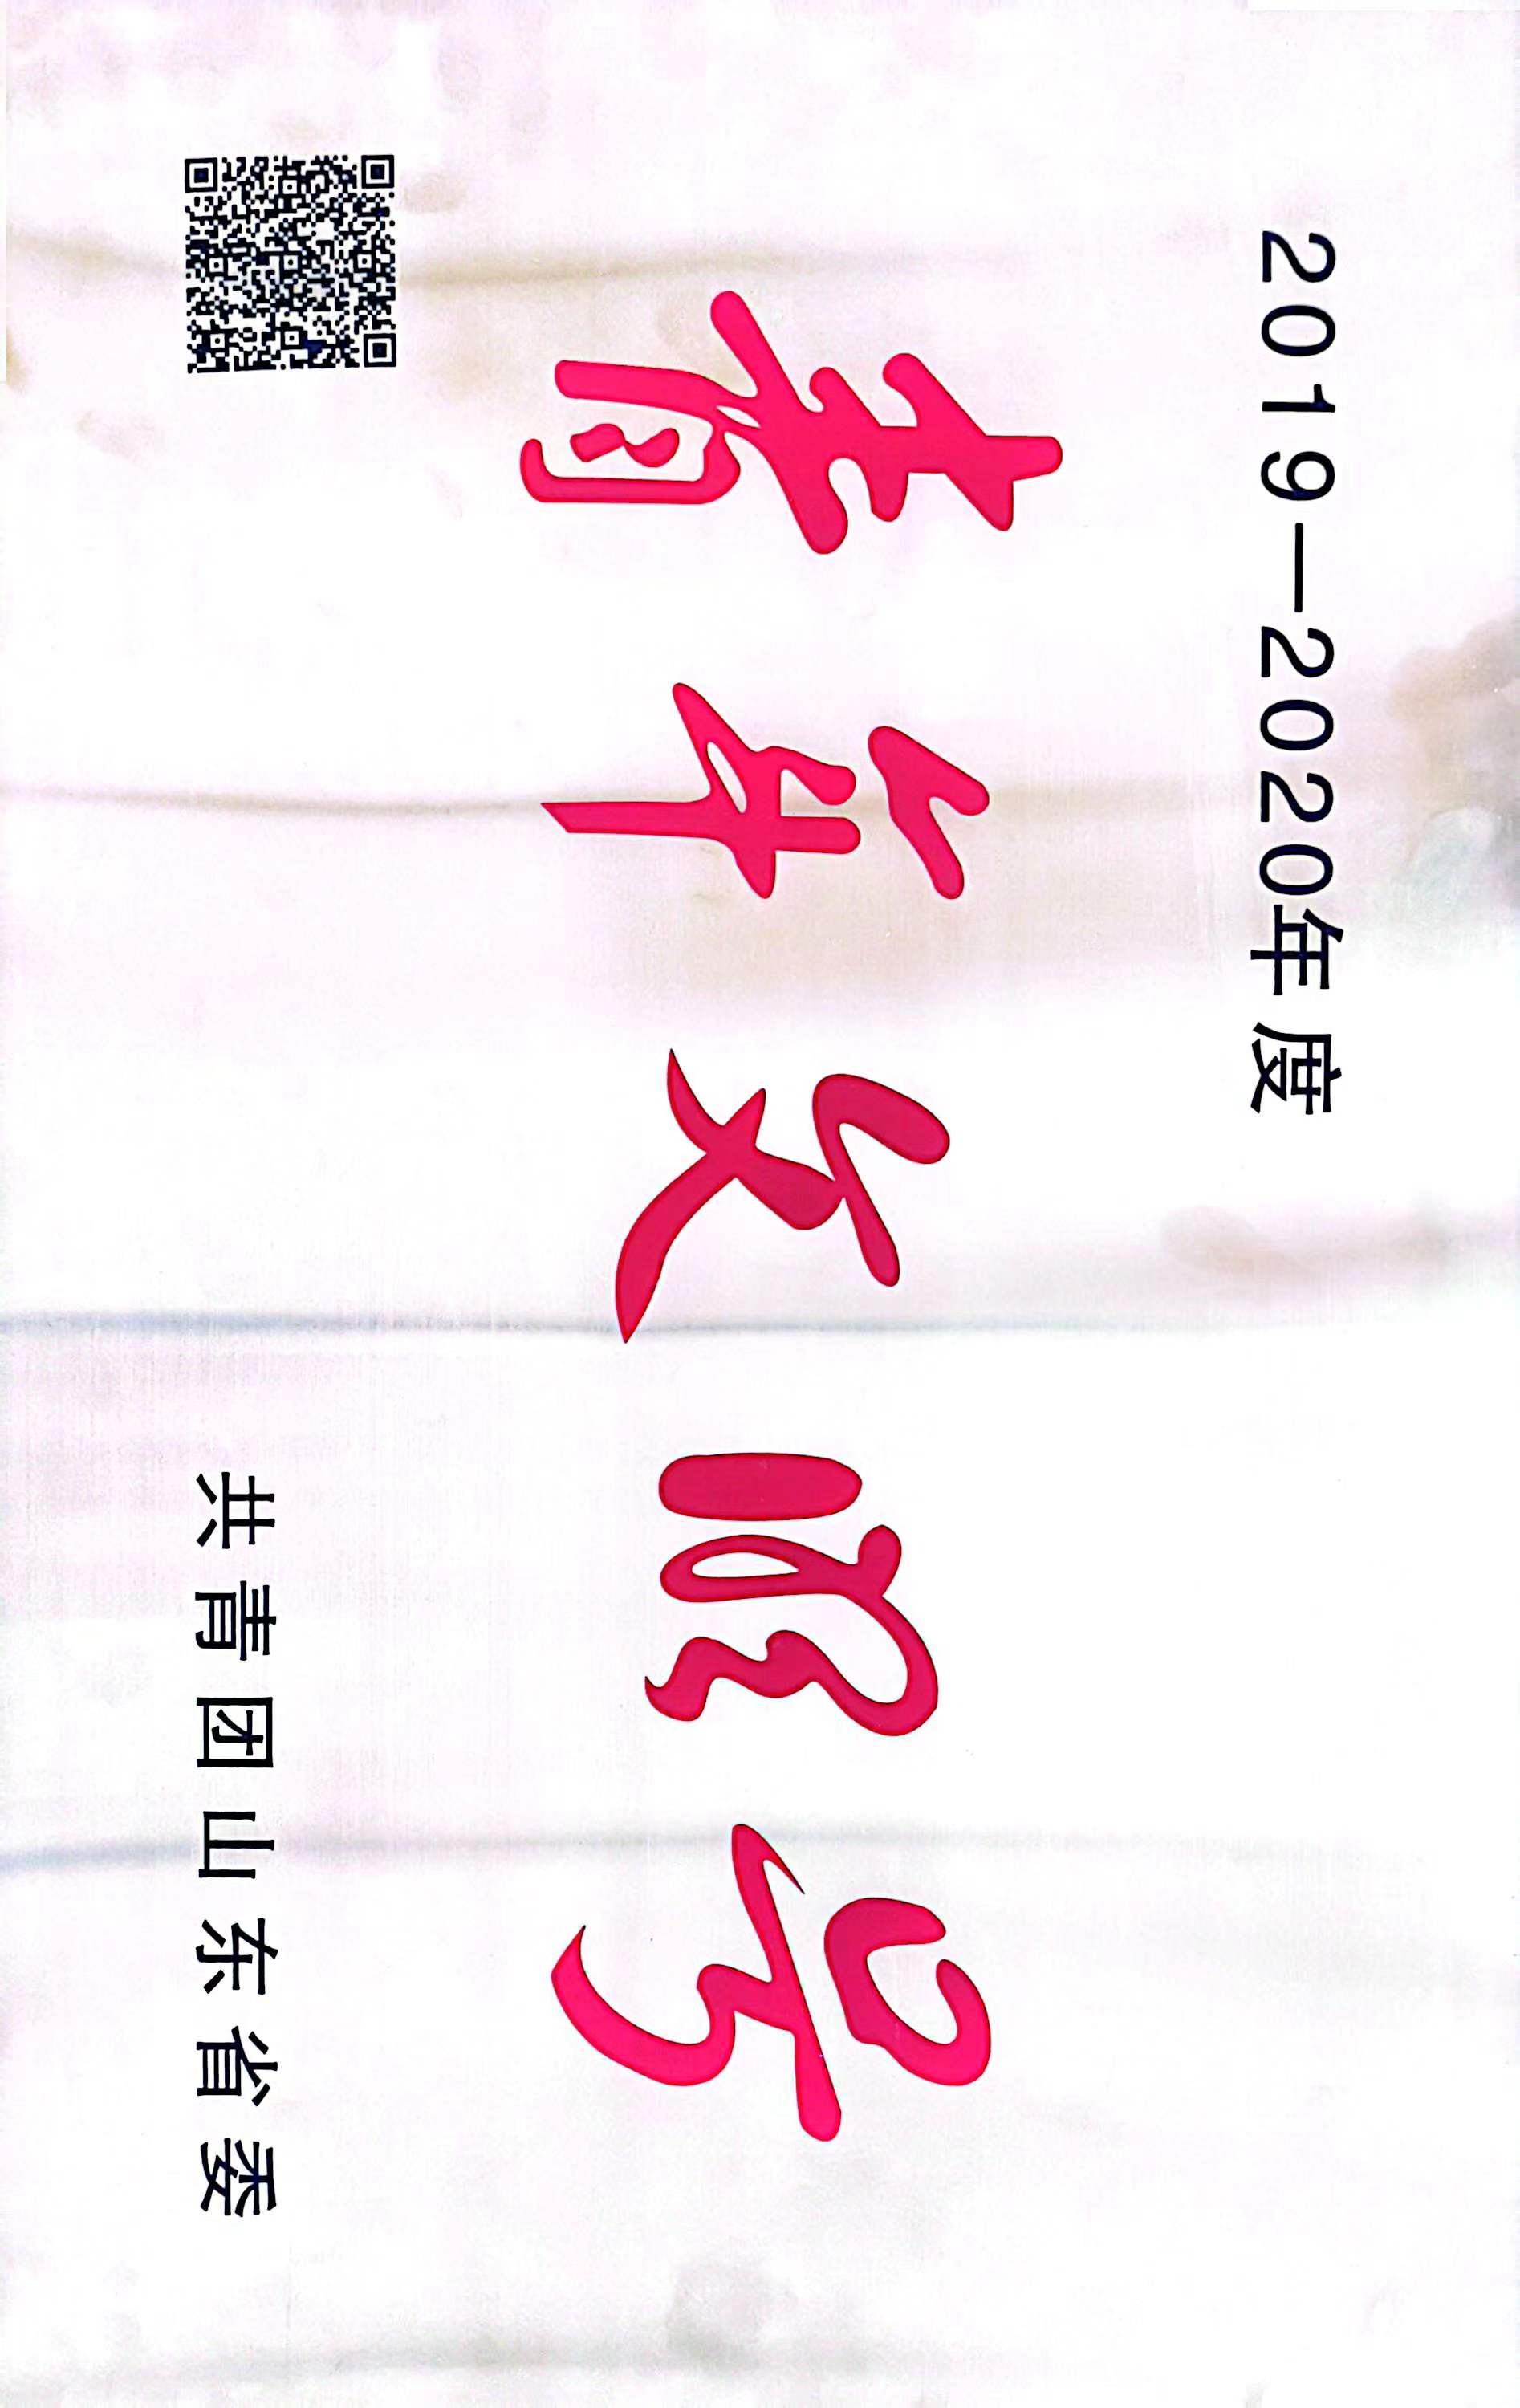 2019—2020年度
青年文明号
共青团山东省委